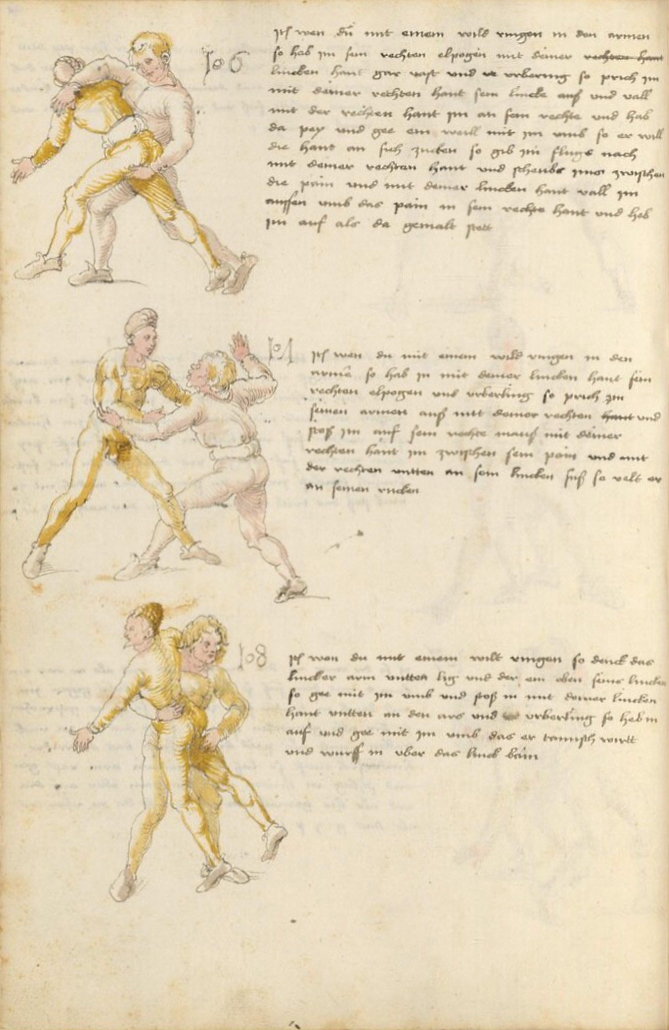 106
Itz wen du mit einem wild ringen in den armen
so heb im sein rechten elpogen mit deiner rechten hant
lincken hant gar vast und urbering so prich im
mit deiner rechten hant sein lincke auf und vall
mit der rechten hant im an sein rechte und hab
da pey und gee ein weill mit im umb so er will
die hant an sich zucken so gib im flugs nach
mit deiner rechten hant und scheubs im zwischen
die pain und mit deiner lincken hant vall im
aussen umb das pain in sein rechte hant und heb
im auf als da gemalt stett
107
Itz wen du mit einem wild ringen in den
armen so heb in mit deiner lincken hant sein
rechten elpogen und urbering so prich im
seinen armen auf mit deiner rechten hant und
stoß im auf sein rechte mauß mit deiner
rechten hant im zwischen sein pain und mit
der rechten untten an sein lincken fuß so velt er
an seinen rucken
108
Itz wen du mit einem wilt ringen so denck das
lincker arm untten lig und der ein oben seins lincken
so gee mit im umb und stoß in mit deiner lincken
hant untten an den ars und urbering so heb in
auf und gee mit im umb das er tamisch wirtt
und wurff in uber das linck bain